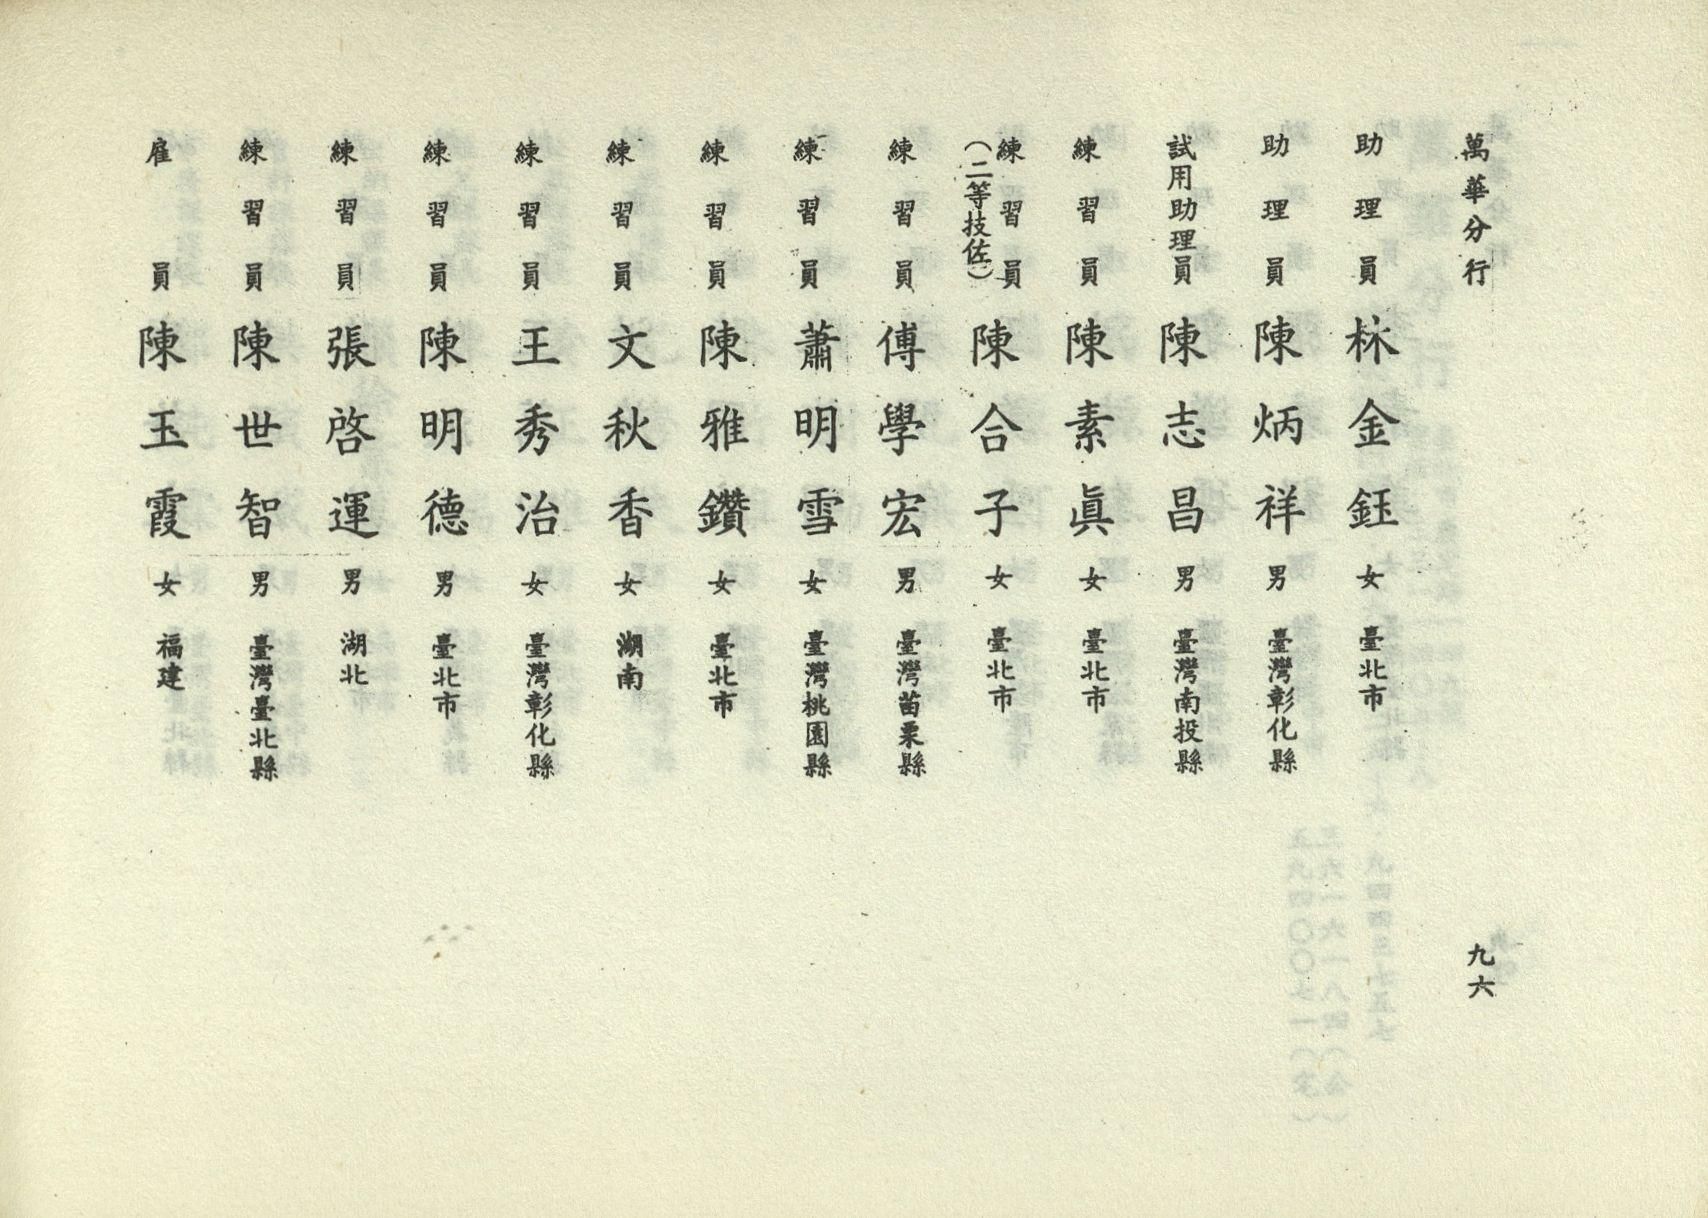 萬華分行
九六
助理員 林金鈺 女 臺北市
助理員 陳炳祥 男 臺灣彰化縣
試用助理員 陳志昌 男 臺灣南投縣
練習員 陳素眞 女 臺北市
練習員(二等技佐) 陳合子 女 臺北市
練習員 傅學宏 男 臺灣苗栗縣
練習員 蕭明雪 女 臺灣桃園縣
練習員 陳雅鑽 女 臺北市
練習員 文秋香 女 湖南
練習員 王秀治 女 臺灣彰化縣
練習員 陳明德 男 臺北市
練習員 張啓運 男 湖北
練習員 陳世智 男 臺灣臺北縣
雇員 陳玉霞 女 福建